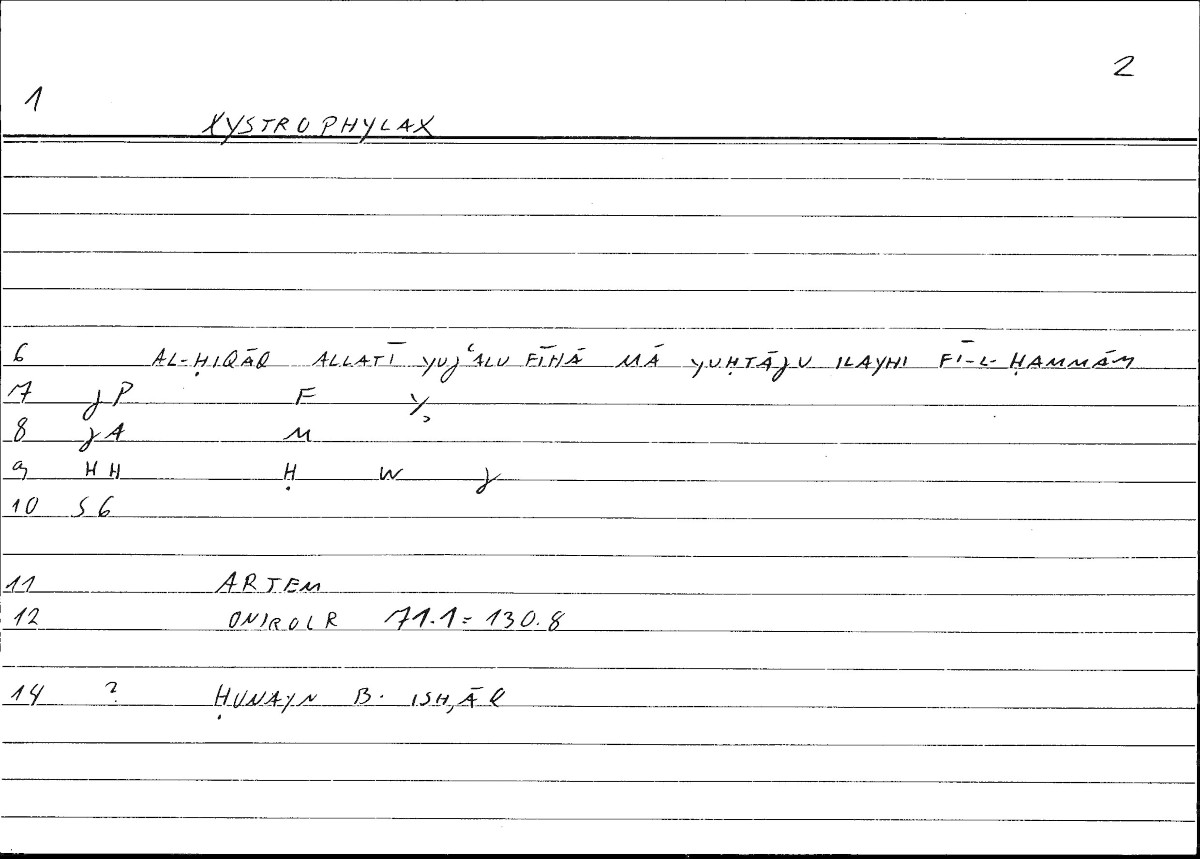 2
1 XYSTROPHYLAX
6 AL-ḤIQĀQ ALLATĪ YUJʿALU FĪHĀ MĀ YUḤTĀJU ILAYHI FĪ-L-ḤAMMĀM
7 JP F Y
8 JA M
9 HH Ḥ W J
10 S6
11 ARTEM
12 ONIROLR 71.1 = 130.8
14 ? ḤUNAYN B. ISḤĀQ